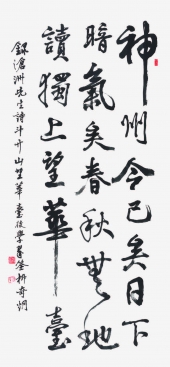 神州今已矣日下
暗氣矣春秋無地
讀獨上望華臺
錄滄洲先生詩斗升山望華臺後學